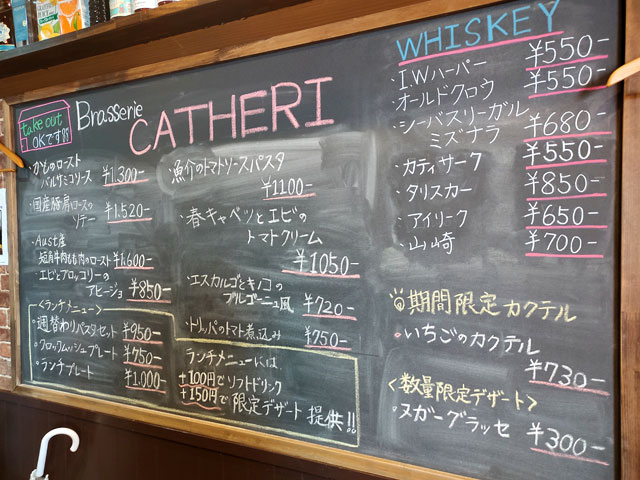 take out
OKです!!
Brasserie
CATHERI
・かものロースト
バルサミコソース ¥1,300-
・国産豚肩ロースの
ソテー ¥1,520-
・Aust産
短角牛肉もも肉のロースト ¥1,600-
・エビとブロッコリーの
アヒージョ ¥850-
<ランチメニュー>
・週替わりパスタセット ¥950-
・クロックムッシュプレート ¥750-
・ランチプレート ¥1,000-
漁介のトマトソースパスタ
¥1100-
・春キャベツとエビの
トマトクリーム
¥1050-
・エスカルゴとキノコの
ブルゴーニュ風 ¥720-
・トリッパのトマト煮込み ¥750-
ランチメニューには
+100円でソフトドリンク
+150円で限定デザート提供!!
WHISKEY
・I.Wハーパー ¥550-
・オールドクロウ ¥550-
・シーバスリーガル
ミズナラ ¥680-
・カティサーク ¥550-
・タリスカー ¥850-
・アイリーク ¥650-
・山崎 ¥700-
期間限定カクテル
・いちごのカクテル
¥730-
<数量限定デザート>
・ヌガーグラッセ ¥300-